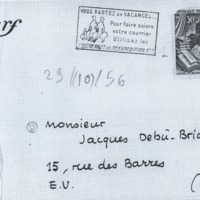 erf
VOUS PARTEZ EN VACANCES..
Pour faire suivre
votre courrier
Utilisez les
29/(10)/56
Monsieur
Jacques Debû-Brid
15, rue des Barres
E.V.